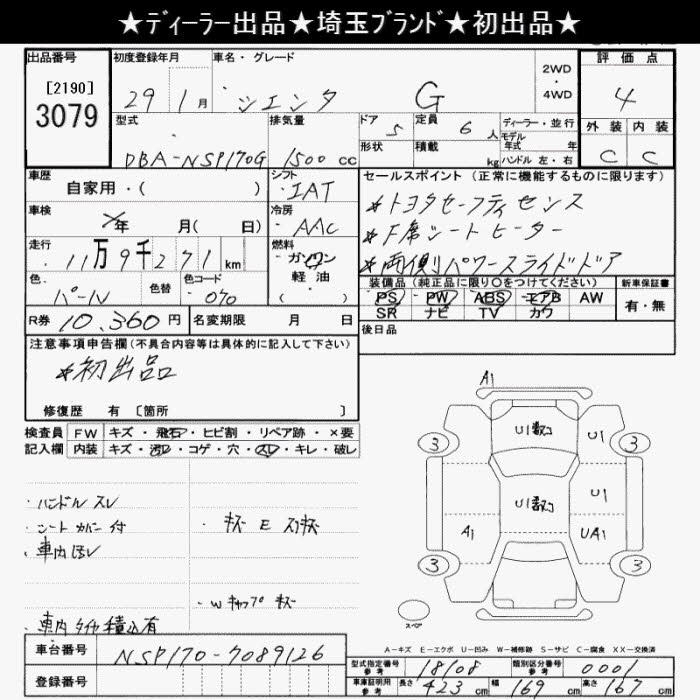 ★ディーラー出品★埼玉ブランド★初出品★
出品番号
[2190]
3079
初度登録年月
29年1月
車名・グレード
シエンタ G
2WD
・
4WD
評価点
4
外装 内装
C C
型式
DBA-NSP170G
排気量
1500 cc
ドア 5
形状
定員 6 人
積載 kg
ディーラー・並行
モデル年式 年
ハンドル 左・右
車歴
自家用・( )
シフト
IAT
車検
年 月( 日)
冷房
AAC
走行
11万9千271km
燃料
ガソリン
軽油
( )
色
パール
色替
色コード
070
R券 10,360円
名変期限 月 日
セールスポイント (正常に機能するものに限ります)
*トヨタセーフティセンス
*F席シートヒーター
*両側パワースライドドア
装備品(純正品に限り○をつけてください)
PS PW ABS エアB AW
SR ナビ TV カワ
新車保証書
有・無
後日品
注意事項申告欄(不具合内容等は具体的に記入して下さい)
*初出品
修復歴 有 [箇所 ]
検査員 FW キズ・飛石・ヒビ割・リペア跡・×要
記入欄 内装 キズ・汚レ・コゲ・穴・スレ・キレ・破レ
・ハンドル スレ
・シート カバー 付
・キズ E スリキズ
・車内 ヨゴレ
・Wキャップ キズ
・車内 タイヤ 積込有
A1
3 3
U1数コ U1
U1数コ U1
A1 UA1
3 3
スペア
A-キズ E-エクボ U-凹み W-補修跡 S-サビ C-腐食 XX-交換済
車台番号 NSP170-7089126
登録番号
型式指定番号 参考 18108
類別区分番号 参考 0001
車庫証明用 参考 長さ 423 cm 幅 169 cm 高さ 167 cm